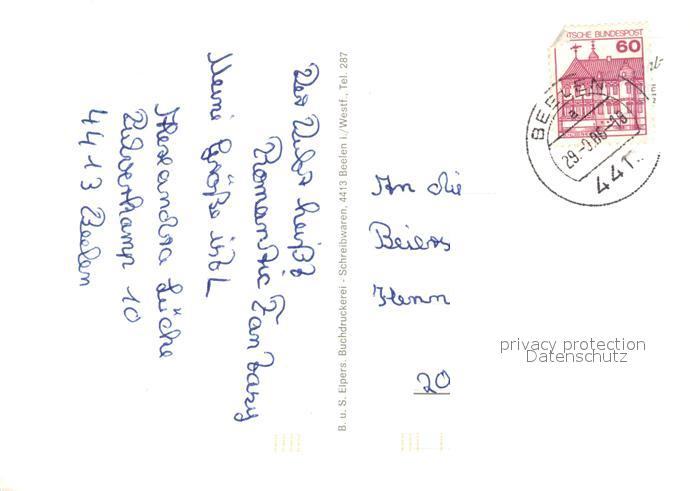 Der Duft heißt
Romantic Fantasy
Meine Größe ist L
Alexandra Lücke
4413 Beelen
B. u. S. Elpers. Buchdruckerei - Schreibwaren, 4413 Beelen i./Westf., Tel. 287
DEUTSCHE BUNDESPOST
60
BEELEN
a
441
An die
Beiers
20
privacy protection
Datenschutz